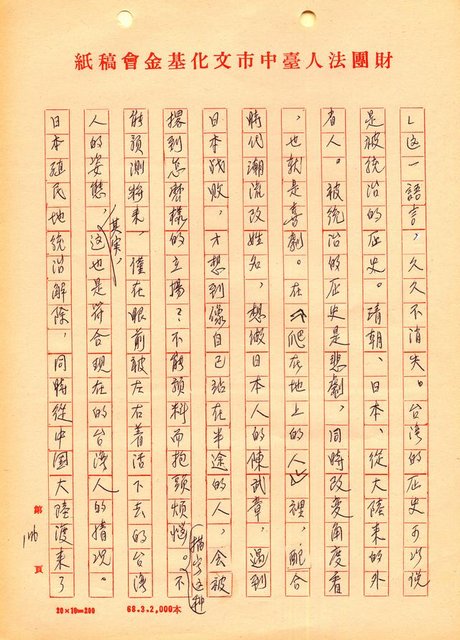 財團法人臺中市文化基金會稿紙
」这一語言，久久不消失。台湾的历史可以说
是被统治的历史。清朝、日本、從大陸来的外
省人。被统治的历史是悲劇，同時改变角度看
，也就是喜劇。在《爬在地上的人》裡，配合
時代潮流改姓名，想做日本人的陳武章，遇到
日本战败，才想到像自己站在半途的人，会被
撂到怎麽樣的立場？不能預料而抱頭煩惱。不
能預測将来，僅在眼前被左右着活下去的台湾
人的姿態，这也是符合现在的台湾人的情况。
其实，
描写这种
日本殖民地统治解除，同時從中国大陸渡来了
第 106 頁
20×10=200
68.3.2,000本